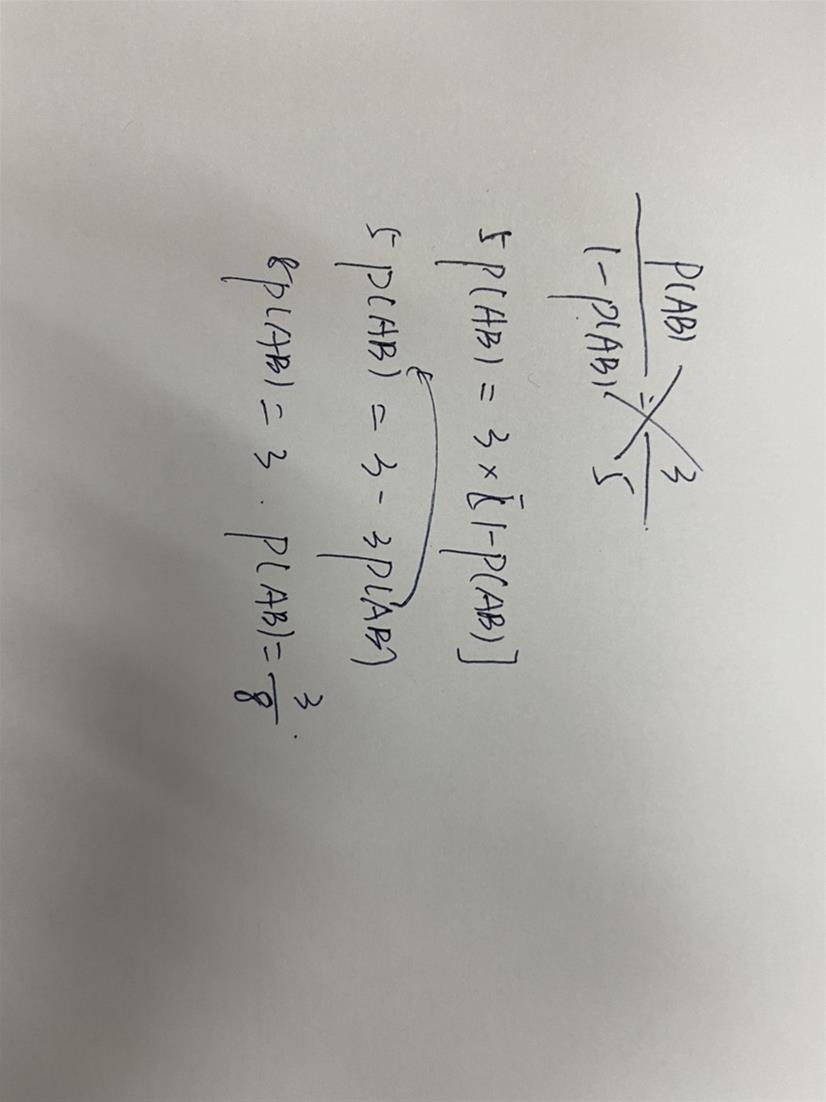 P(AB) / 1-P(AB) = 3/5
5P(AB) = 3×[1-P(AB)]
5P(AB) = 3-3P(AB)
8P(AB) = 3. P(AB) = 3/8.